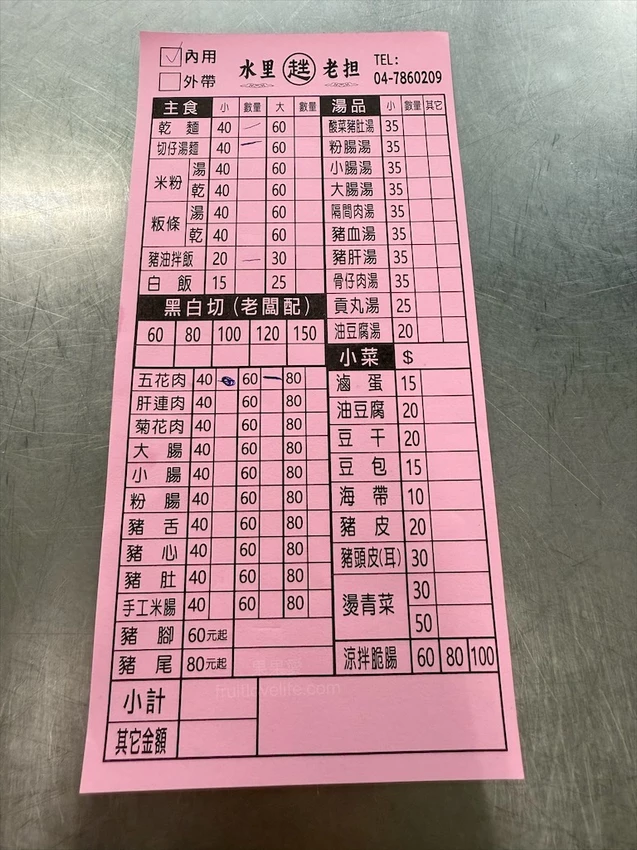 內用
外帶
水里 老担
TEL:
04-7860209
主食 小 數量 大 數量
乾麵 40 60
切仔湯麵 40 60
米粉 湯 40 60
乾 40 60
粄條 湯 40 60
乾 40 60
豬油拌飯 20 30
白飯 15 25
黑白切(老闆配)
60 80 100 120 150
五花肉 40 60 80
肝連肉 40 60 80
菊花肉 40 60 80
大腸 40 60 80
小腸 40 60 80
粉腸 40 60 80
豬舌 40 60 80
豬心 40 60 80
豬肚 40 60 80
手工米腸 40 60 80
豬腳 60元起
豬尾 80元起
湯品 小 數量 其它
酸菜豬肚湯 35
粉腸湯 35
小腸湯 35
大腸湯 35
隔間肉湯 35
豬血湯 35
豬肝湯 35
骨仔肉湯 35
貢丸湯 25
油豆腐湯 20
小菜 $
滷蛋 15
油豆腐 20
豆干 20
豆包 15
海帶 10
豬皮 20
豬頭皮(耳) 30
燙青菜 30
50
涼拌脆腸 60 80 100
小計
其它金額
fruitlovelife.com